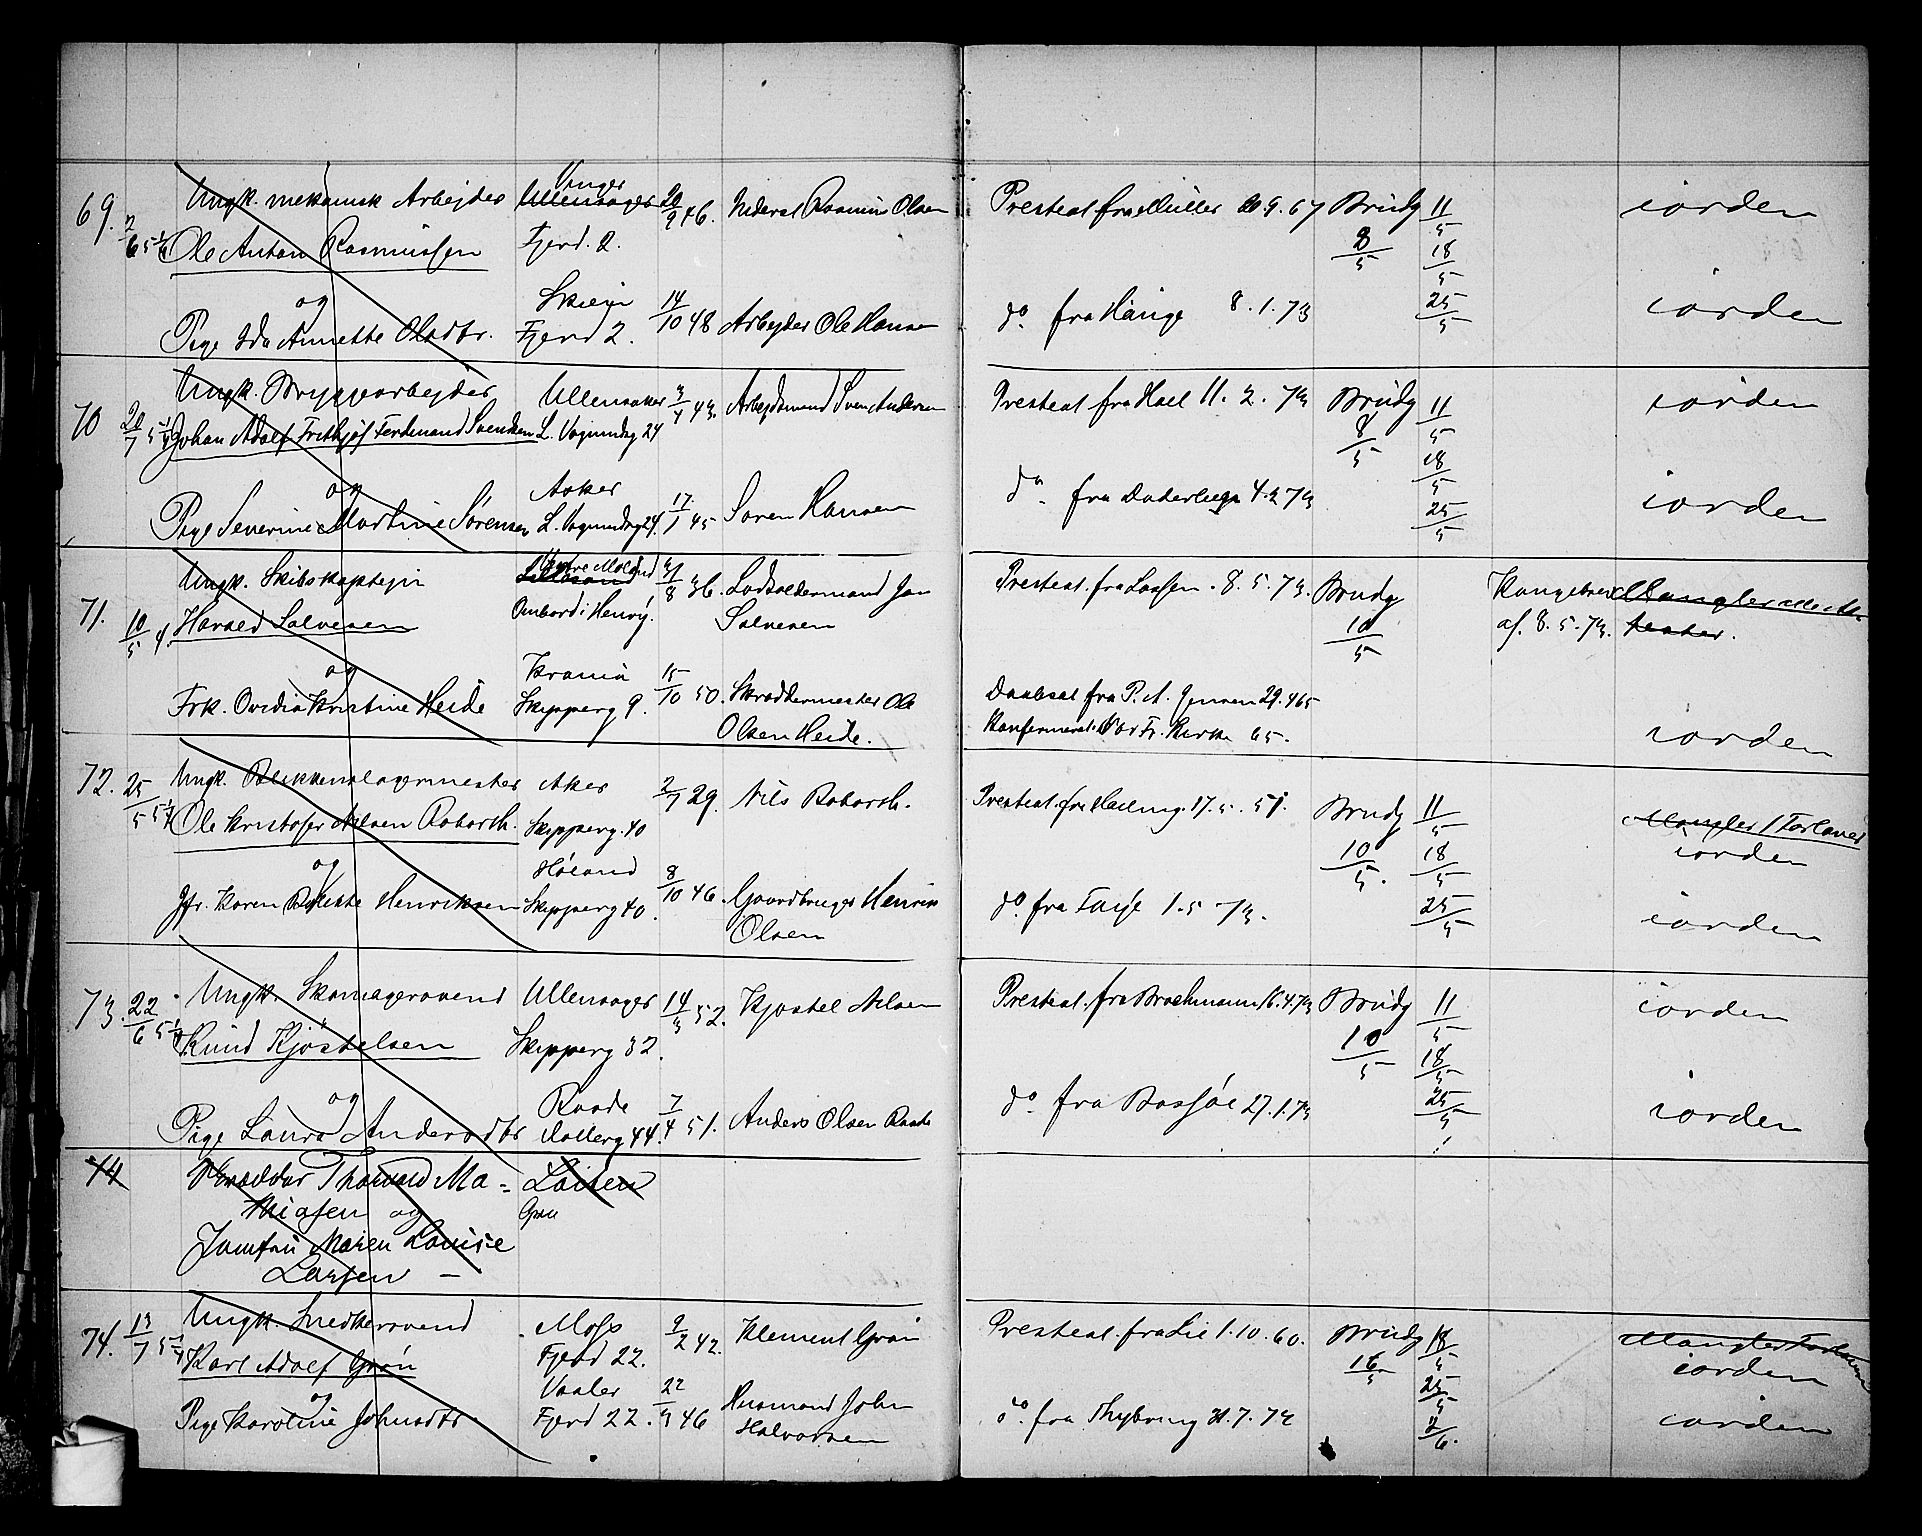 69. 2/6 5 1/4 Ungk. mekanisk Arbejder Ullensager Vinger 20/9 46. Inderst Rasmus Olsen Presteat. fra Müller 9. 67 Brudg 8/5 11/5 18/5 25/5 iorden
Ole Anton Rasmussen Fjerd. 2.
og
Pige Ida Annette Olsdtr. Fjerd 2. 14/10 48 Arbejder Ole Hansen do. fra Hange 8. 1. 73 iorden
70 20/7 5 1/4 Ungk. Bryggearbejder Ullensaker 3/4 43. Arbejdsmand Sven Andersen Presteat. fra Hall 11. 2. 73 Brudg 8/5 11/5 18/5 25/5 iorden
Johan Adolf Frithjof Ferdinand Svendsen L. Vognmdsg 24
og
Pige Severine Martine Sørensen Asker L. Vognmdsg 24. 17/1 45 Soren Hansen do. fra 4. 2. 73 iorden
71. 10/5 4. Ungk. Skibskaptejn Lillesand Vestre Moland 31/8 36. Lodsoldermand Jan Presteat. fra Lassen. 8. 5. 73. Brudg 10/5 Kongebrev Mangler
Harald Salvesen Ombord i Salvesen af. 8. 5. 73.
og
Frk. Ovidia Kristine Heide Krania Skipperg 9. 15/10 50. Skreddermester Ole Daabsat fra P. A. Jensen 29. 4 65
Olsen Heide. Konfirmeret i Vor Fr. Kirke 65. iorden
72. 25/5 5 1/4 Ungk. Blikkenslagermester Aker 2/7 29. Nils Roborth. Presteat. fra Hellung. 17. 5. 51. Brudg 10/5. 11/5 18/5 25/5 Mangler 1 Forlover
Ole Kristofer Nilsen Roborth. Skipperg. 40 iorden
og Høland
Jfr. Karen Henriksen Skipperg 40. 8/10 46. Gaardbruger Henrik do. fra 1. 5 73. iorden
Olsen
73. 22/6 5 1/4 Ungk. Skomagersvend Ullensager 14/3 52. Kjostel Nilsen Presteat. fra Brochmann 16. 4. 73 Brudg 10/5 11/5 18/5 25/5 iorden
Knud Kjöstelsen Skipperg 32.
og Raade
Pige Laura Andersdtr Mollerg 44. 7/4 51. Anders Olsen Raade do. fra Bassøe 27. 1. 73 iorden
74 Skrædder Thorvald Ma- Larsen
thiasen og Gran
Jomfru Maren Louise
Larsen -
74. 13/7 5 1/4 Ungk. Snedkersvend Moss 9/2 42. Klement Grøn Presteat. fra Lie 1. 10. 60. Brudg 16/5 18/5 25/5 2/6. Mangler Forlovere
Karl Adolf Grøn Fjerd 22. iorden
og Vaaler
Pige Karoline Johnsdtr. Fjerd 22. 22/3 46 Husmand John do. fra Thybring 21. 7. 72 iorden
Halvorsen